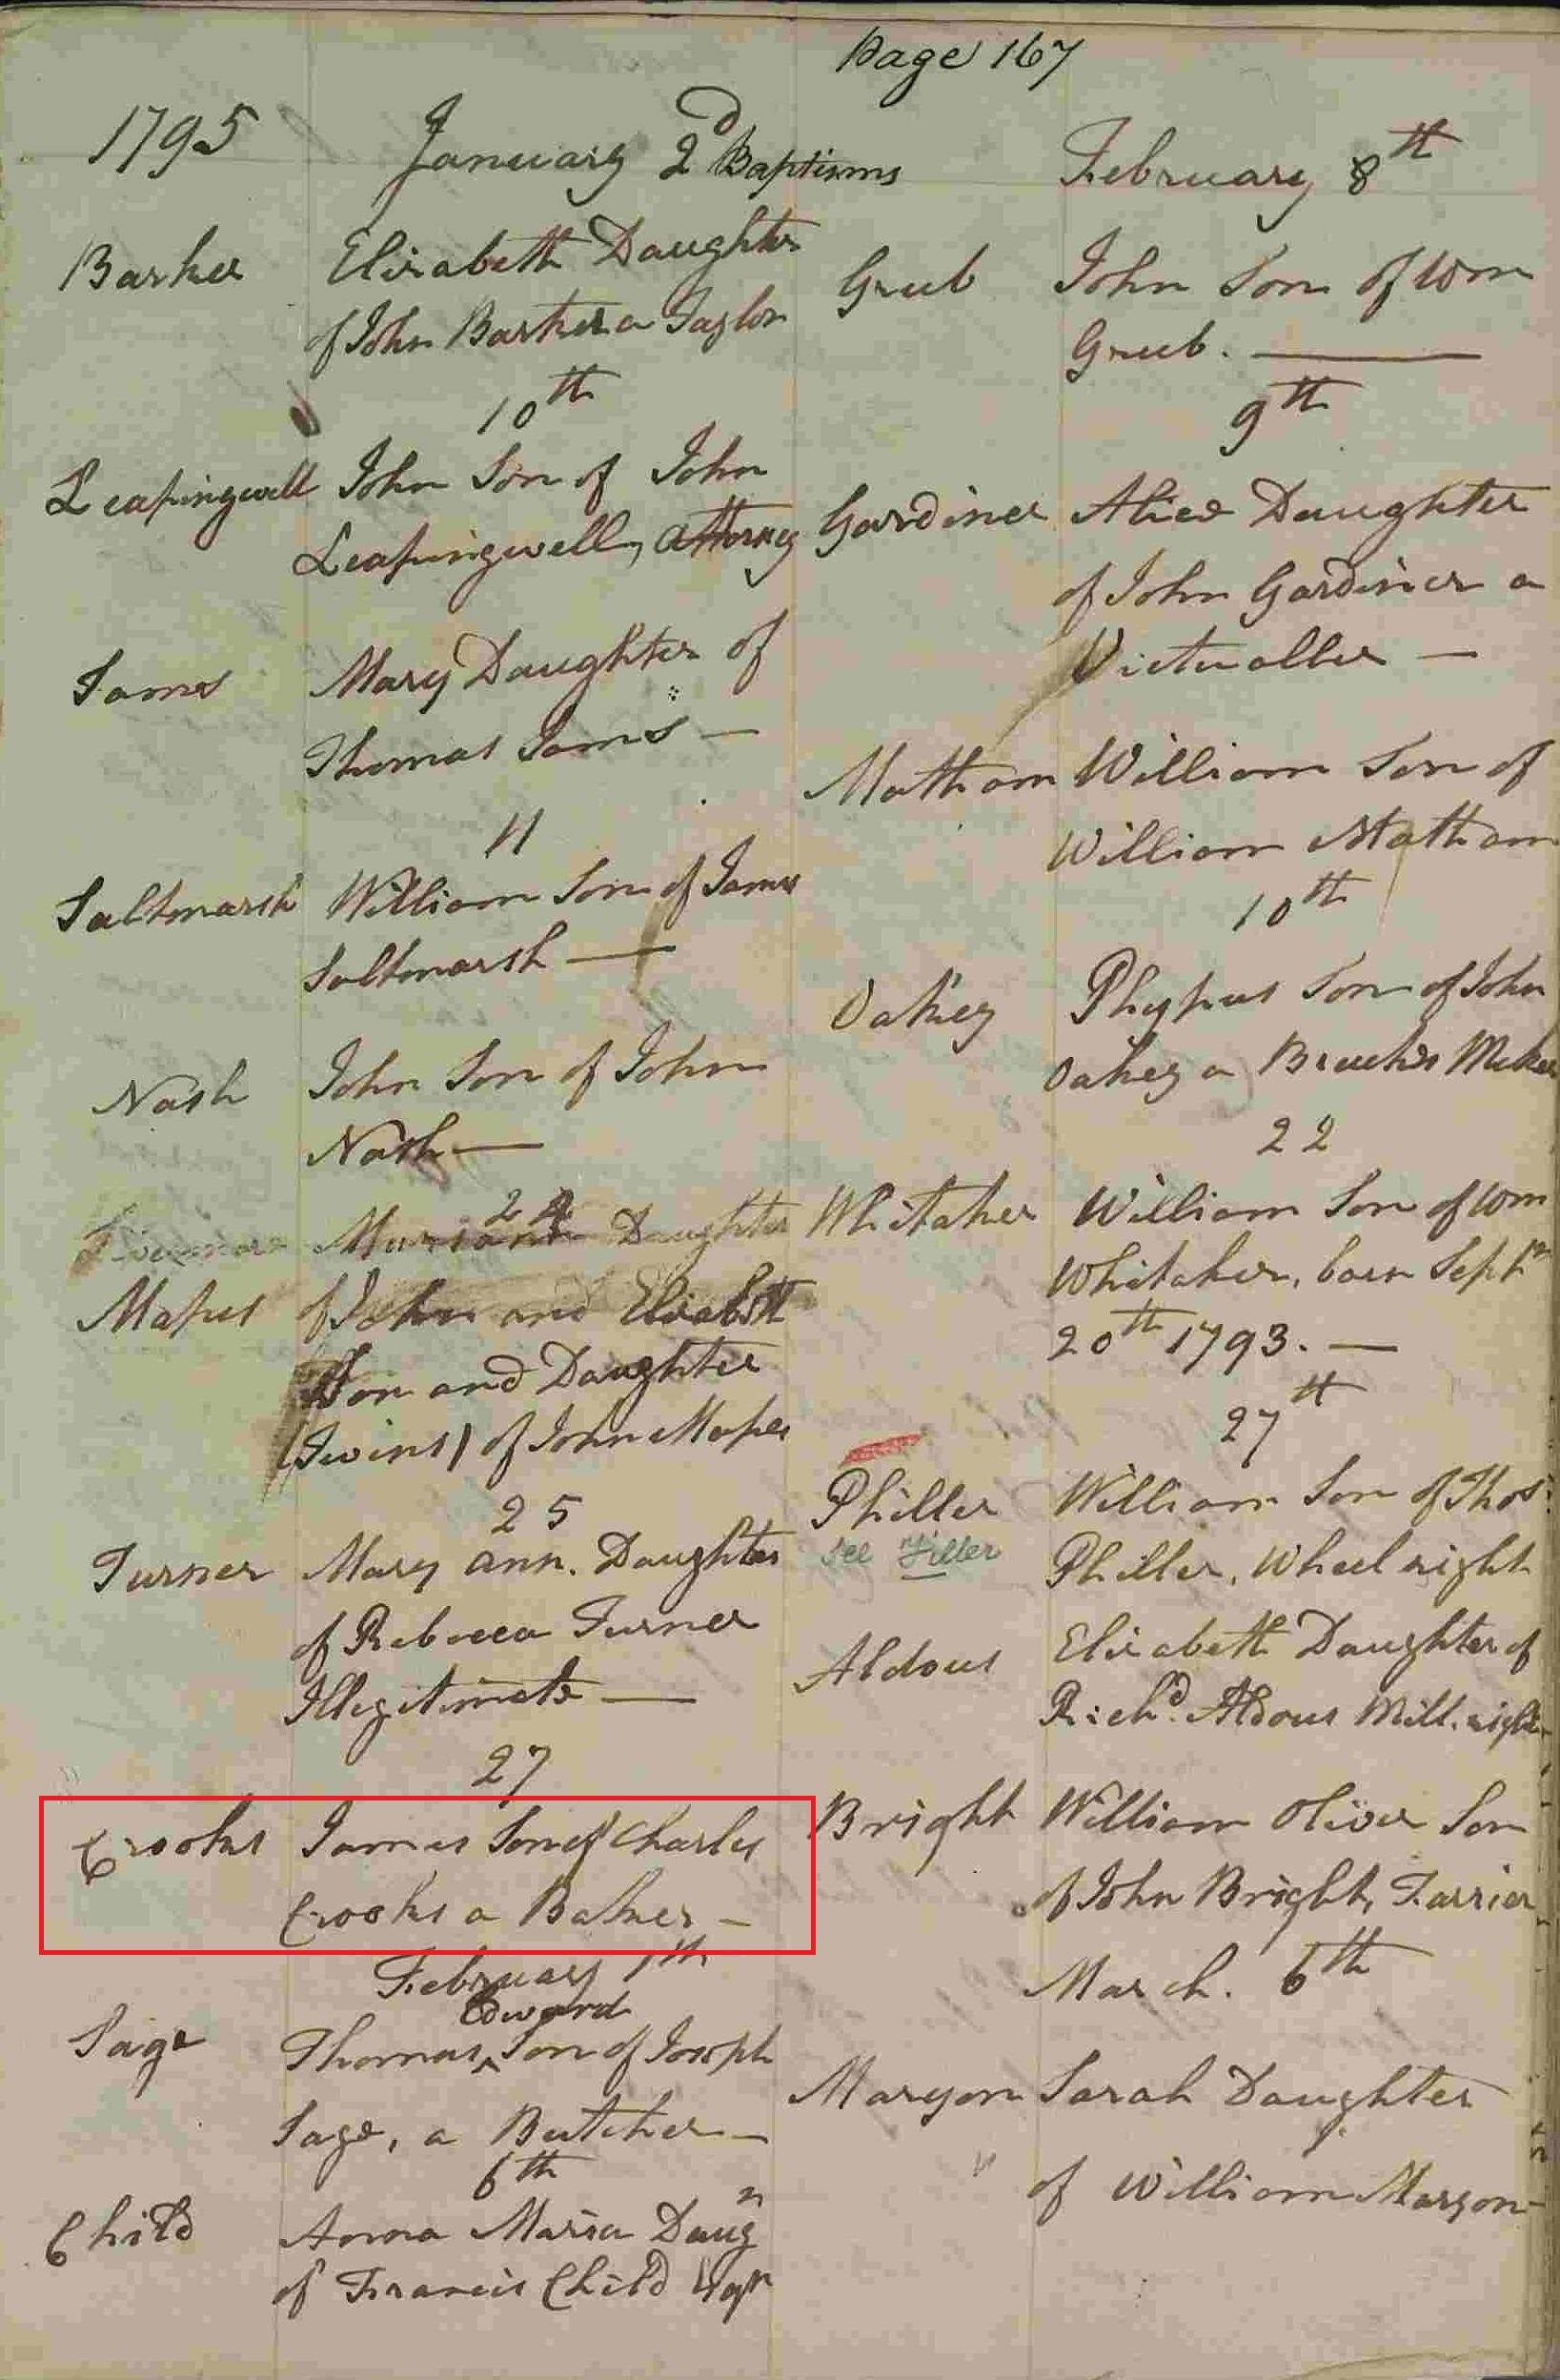 Page 167
1795
January 2d Baptisms
Barker Elizabeth Daughter
of John Barker a Taylor
10th
Leapingwell John Son of John
Leapingwell, Attorney
James Mary Daughter of
Thomas James —
11
Saltmarsh William Son of James
Saltmarsh —
Nash John Son of John
Nash —
24
Daughter
Mapes of John and Elizabeth
Son and Daughter
(Twins) of John Mapes
25
Turner Mary Ann. Daughter
of Rebecca Turner
Illegitimate —
27
Crooks James Son of Charles
Crooks a Baker —
February 1th
Edward
Sage Thomas ^ Son of Joseph
Sage, a Butcher —
6th
Child Anna Maria Daugr
of Francis Child Esqr
February 8th
Grub John Son of Wm
Grub. —
9th
Gardiner Alice Daughter
of John Gardiner a
Victualler —
Matham William Son of
William Matham
10th
Oakey Son of John
Oakey a Maker
22
Whitaker William Son of Wm
Whitaker, born Septr
20th 1793. —
27th
Philler William Son of Thos:
see Filler Philler, Wheelright
Aldous Elizabeth Daughter of
Richd. Aldous Millright
Bright William Oliver Son
of John Bright, Farrier
March. 6th
Maryon Sarah Daughter
of William Maryon